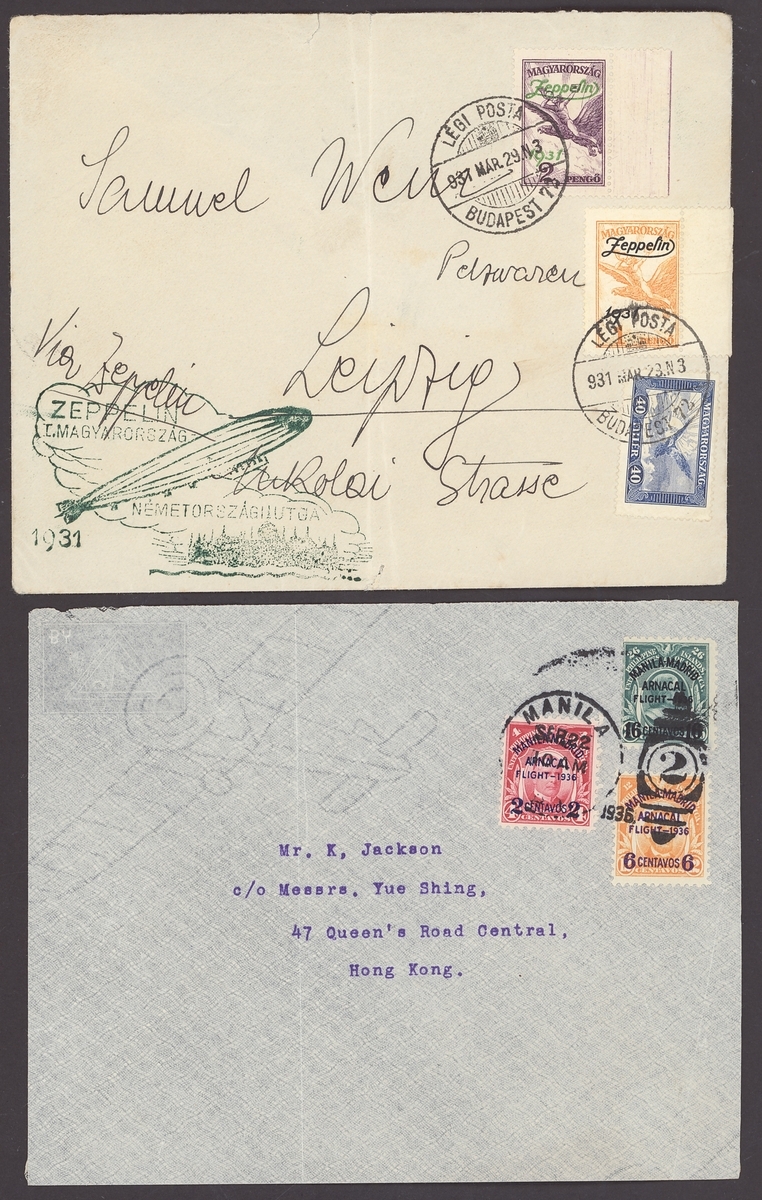 MAGYARORSZÁG
Zeppelin
1931
2 PENGŐ
LÉGI POSTA
931 MÁR.29.N3
BUDAPEST 72
Samuel
MAGYARORSZÁG
Zeppelin
1931
LÉGI POSTA
931 MÁR.28.N3
BUDAPEST 72
Via Zeppelin
Leipzig
MAGYARORSZÁG
40 FILLÉR 40
ZEPPELIN
I. MAGYARORSZÁG-
Strasse
NÉMETORSZÁGI UTJA
1931
26 26
MANILA-MADRID
ARNACAL
FLIGHT-1936
16 CENTAVOS 16
MANILA
SEP 22
10 AM
1936
4
MANILA-MADRID
ARNACAL
FLIGHT-1936
2 CENTAVOS 2
2
MANILA-MADRID
ARNACAL
FLIGHT-1936
6 CENTAVOS 6
Mr. K, Jackson
c/o Messrs. Yue Shing,
47 Queen's Road Central,
Hong Kong.